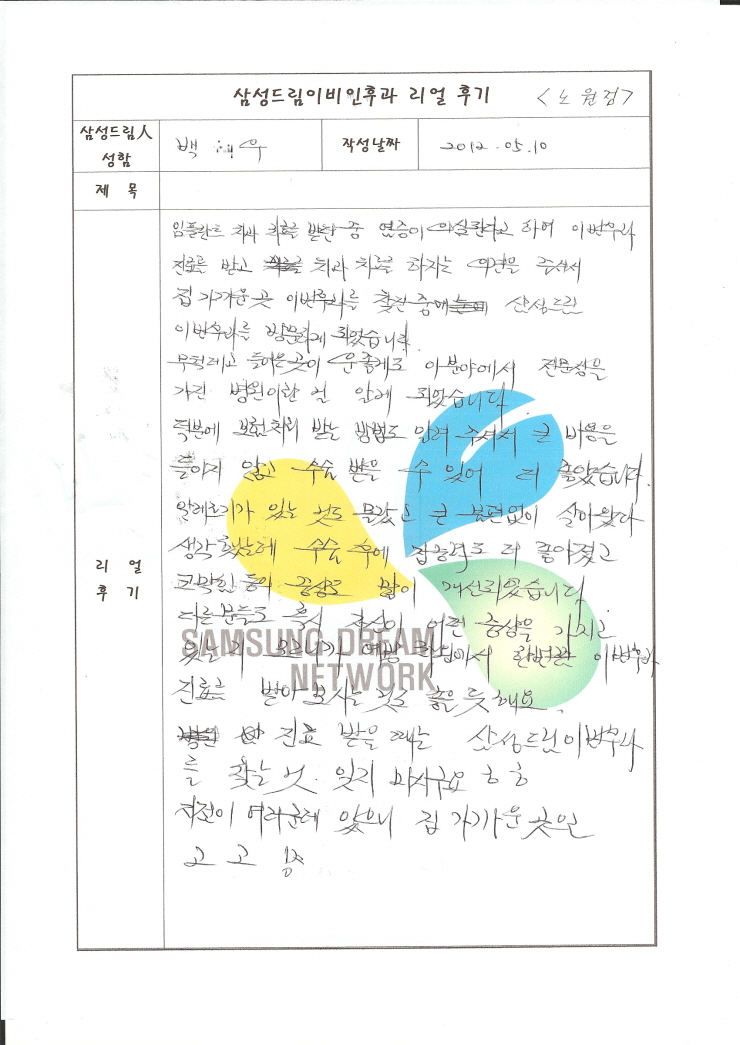 삼성드림이비인후과 리얼 후기 <노원점>
삼성드림人 성함 백 우 작성날짜 2012.05.10
제 목
리 얼 후 기
임플란트 치과 치료를 받던 중 염증이 의심된다고 하여 이비인후과
진료를 받고 치과 치료를 하자는 의견을 주셔서
집 가까운 곳 이비인후과를 찾던 중에 삼성드림
이비인후과를 방문하게 되었습니다.
무턱대고 들어온 곳이 운좋게도 이분야에서 전문성을
가진 병원이란 걸 알게 되었습니다
덕분에 보험처리 받는 방법도 알려 주셔서 큰 비용을
들이지 않고 수술 받을 수 있어 더 좋았습니다.
알레르기가 있는 것도 몰랐고 큰 불편없이 살아왔다
생각했는데 수술 후에 집중력도 더 좋아졌고
코막힘 등의 증상도 많이 개선되었습니다
다른 분들도 혹시 자신이 어떤 증상을 가지고
있는지 모르니까 예방 차원에서 한번쯤 이비인후과
SAMSUNG DREAM
NETWORK
진료를 받아 보시는 것도 좋을 듯 해요.
진료 받을 때는 삼성드림이비인후과
를 찾는 것. 잊지 마시구요 ㅎㅎ
지점이 여러군데 있으니 집 가까운 곳으로
고 고 씽